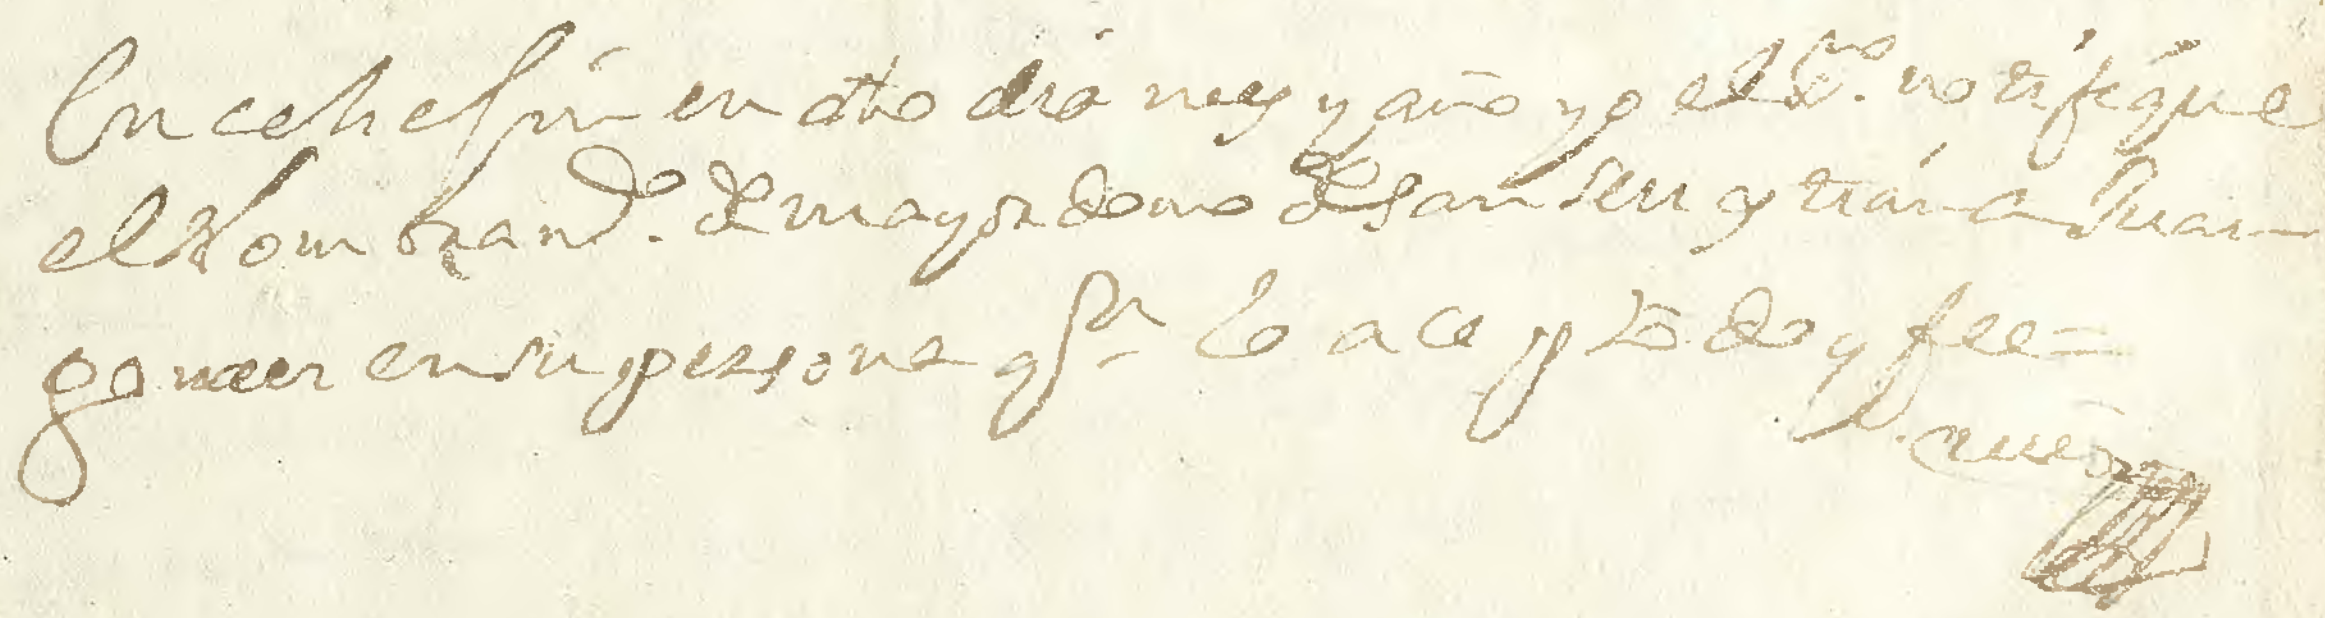 En cehejin en dho dia mes y año yo el Sno. notifique
el Nombram.to de mayordomo de San Seuastian a Juan
gomez en su persona q.n lo acepto doy fee =